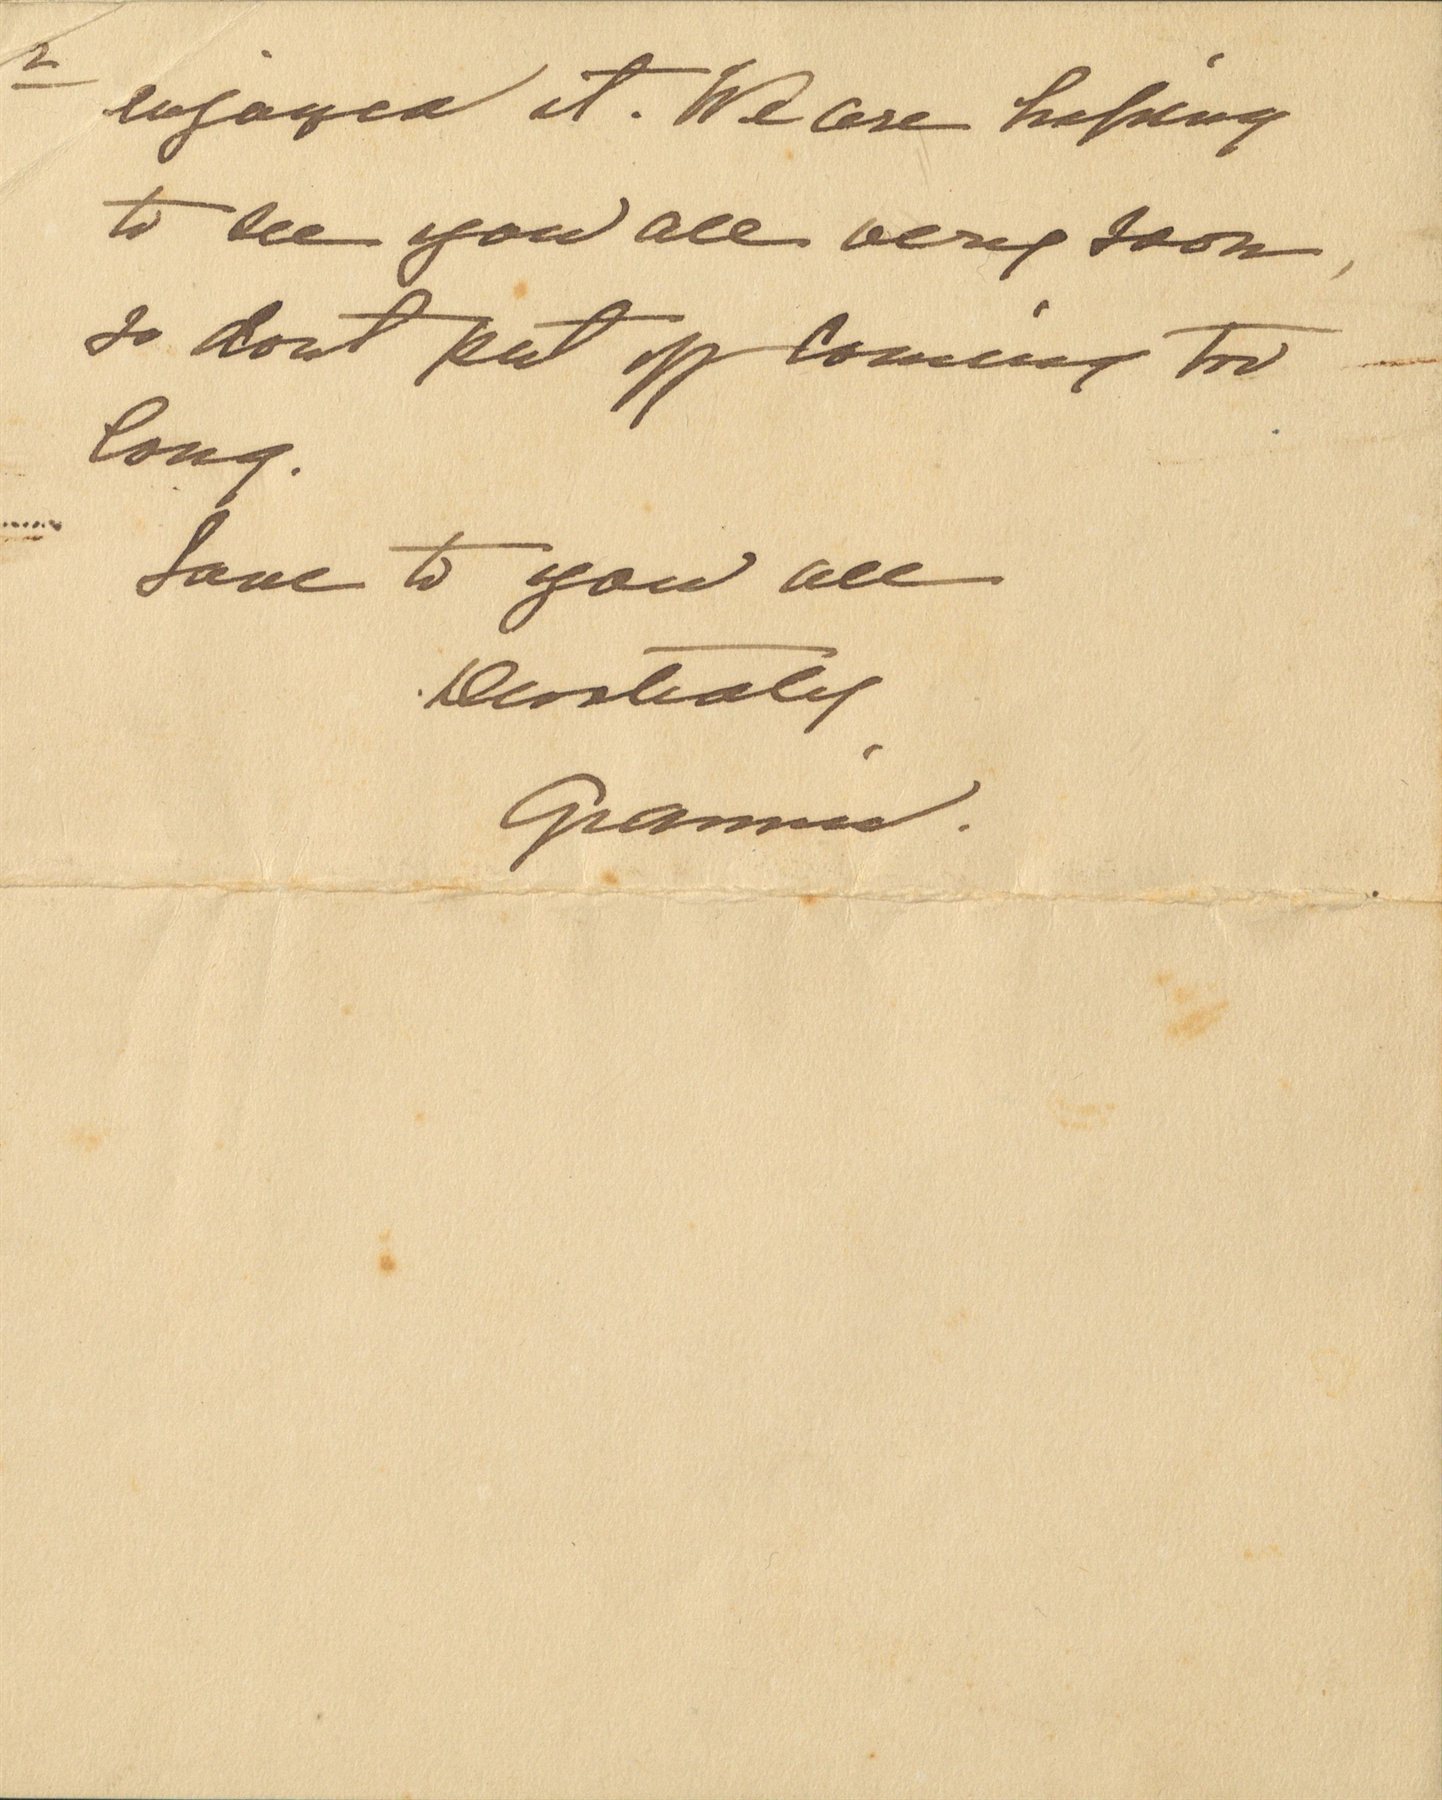 2
enjoyed it. We are hoping
to see you all very soon,
so dont put off coming too
long.
Love to you all
Devotedly
Grannie.